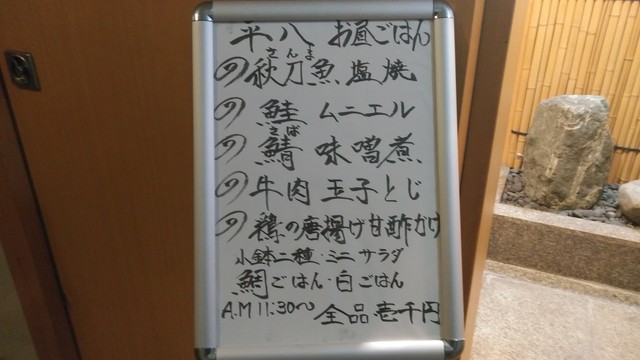 平八 お昼ごはん
さんま
秋刀魚塩焼
鮭 ムニエル
さば
鯖 味噌煮
牛肉 玉子とじ
鶏の唐揚げ甘酢かけ
小鉢二種・ミニサラダ
鯛ごはん・白ごはん
A.M 11:30〜 全品壱千円